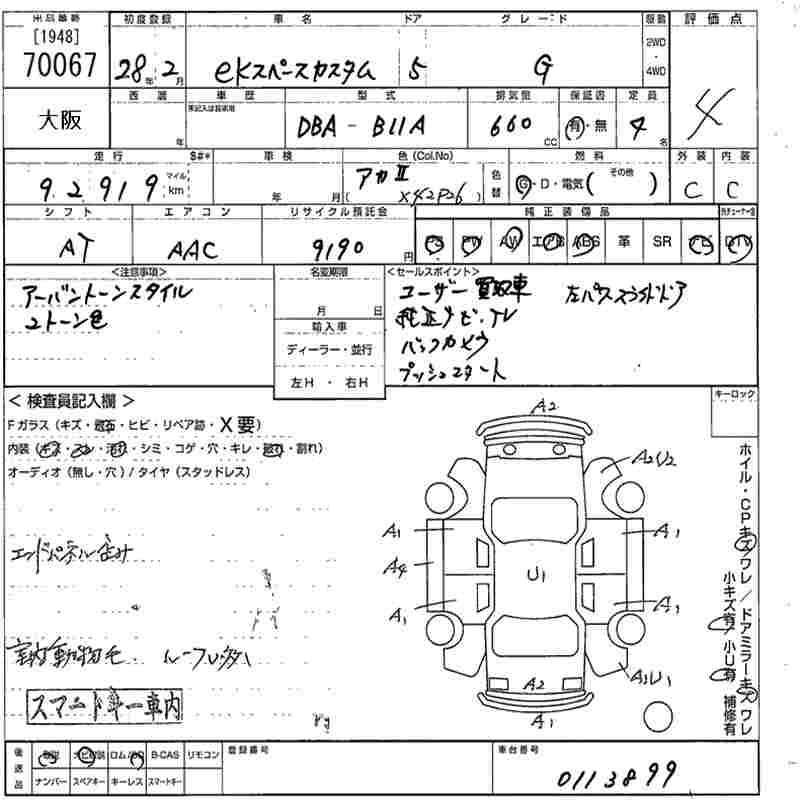 出品番号 初度登録 車名 ドア グレード 駆動 評価点
[1948]
70067 28年 2月 eKスペースカスタム 5 G 2WD・4WD 4
大阪 車歴 型式 排気量 保証書 定員
年 DBA-B11A 660 CC 有・無 4名
走行 $#* 車検 色(Col.No) 色替 燃料 その他 外装 内装
92919 マイル km 年 月 アカⅡ (X42P26) G・D・電気( ) C C
シフト エアコン リサイクル預託金 純正装備品
AT AAC 9190円 PS PW AW エアB ABS 革 SR ナビ DTV
<注意事項> 名変期限 <セールスポイント>
アーバントーンスタイル
2トーン色
月 日
輸入車
ディーラー・並行
左H ・ 右H
ユーザー買取車 左パワスラドア
純正ナビ.TV
バックカメラ
プッシュスタート
<検査員記入欄> キーロック
Fガラス(キズ・飛石・ヒビ・リペア跡・X要)
内装(キズ・スレ・汚れ・シミ・コゲ・穴・キレ・破れ・割れ)
オーディオ(無し・穴)/タイヤ(スタッドレス)
エンドパネル歪み
室内動物毛. ルーフU多い
スマートキー車内
A2
A2U2
A1 A1
A4 U1
A1 A1
A2 A2U1
A1
ホイル・CPキズ/ワレ/ドアミラーキズワレ
小キズ有/小U有 補修有
後送品 取説 ナビ取説 ロム/SD B-CAS リモコン 登録番号 車台番号
ナンバー スペアキー キーレス スマートキー 0113899